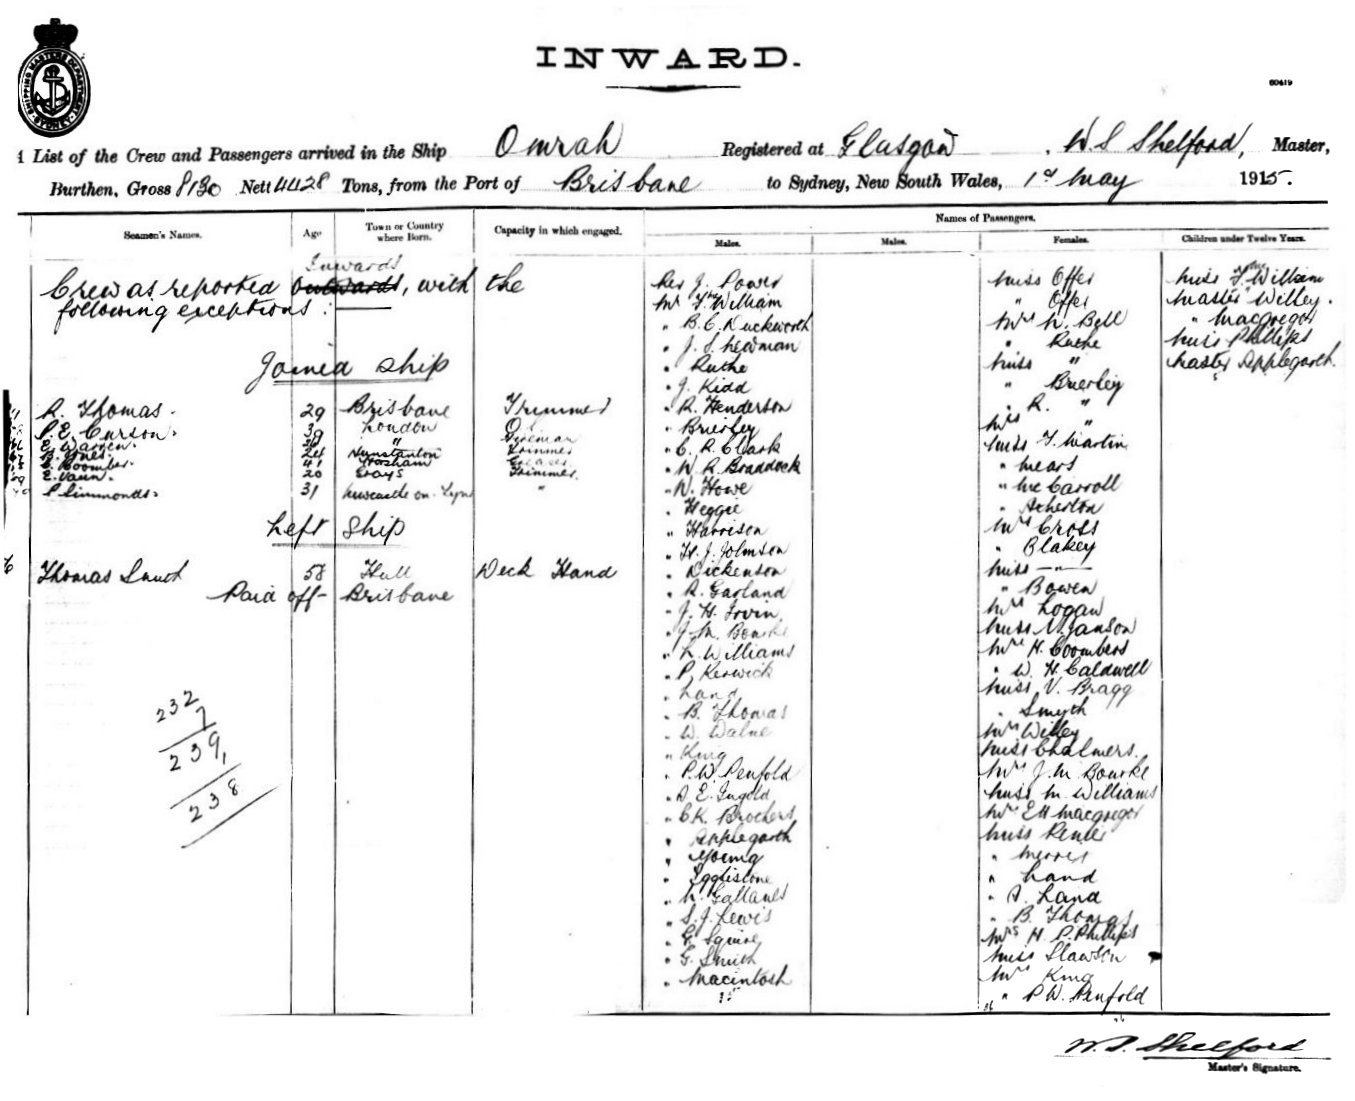 SHIPPING MASTERS DEPARTMENT SYDNEY
INWARD.
60419
List of the Crew and Passengers arrived in the Ship Omrah Registered at Glasgow, W S Shelford, Master,
Burthen, Gross 8130 Nett 4428 Tons, from the Port of Brisbane to Sydney, New South Wales, 1st May 1915.
Seamen's Names. Age Town or Country where Born. Capacity in which engaged. Names of Passengers.
Males. Males. Females. Children under Twelve Years.
Inwards
Crew as reported outwards, with the
following exceptions:
Joined Ship
R. Thomas. 29 Brisbane Trimmer
P. E. Curson. London
E. Warren. " Fireman
B. Jones. 24 Hunstanton Trimmer
Coombes. 41 Horsham Greaser
E. Vaun. 20 Grays Trimmer.
P Simmonds. 31 Newcastle on Tyne "
Left Ship
Thomas Smith 58 Hull Deck Hand
Paid off Brisbane
232
7
239
1
238
Rev J. Power
Mr F. McWilliam
" B. C. Duckworth
" J. S. Newman
" Ruthe
" J. Kidd
" R. Henderson
" Brierley
" C. R. Clark
" W. R. Braddock
" W. Howe
" Heggie
" Harrison
" H. J. Johnson
" Dickenson
" R. Garland
" J. H. Irvin
" J. M. Bourke
" L. Williams
" P. Kerwick
" Land
" B. Thomas
" W. Walne
" King
" P. W. Penfold
" A E. Ingold
" C K. Brochers
" Applegarth
" Young
" Egglistone
" S. J. Lewis
" G. Squire
" G. Smith
" Macintosh
35
Miss Offer
" Offer
Mrs W. Bell
" Ruthe
Miss "
" Brierley
" R. "
Mrs "
Miss F. Martin
" Mears
" McCarroll
" Atherton
Mrs Cross
" Blakey
Miss — " —
" Bowen
Mrs Logan
Miss N. Janson
Mrs H. Coombers
" W. H. Caldwell
Miss V. Bragg
" Smyth
Mrs Willey
Miss Chalmers.
Mrs J. M. Bourke
Miss M. Williams
Mrs E H Macgregor
Miss
"
" Land
" A. Land
" B. Thomas
Mrs H. P. Phillips
Miss Slawson
Mrs King
" P W. Penfold
36
Miss F. McWilliam
Master Willey.
" Macgregor
Miss Phillips
Master Applegarth.
W. S. Shelford
Master's Signature.